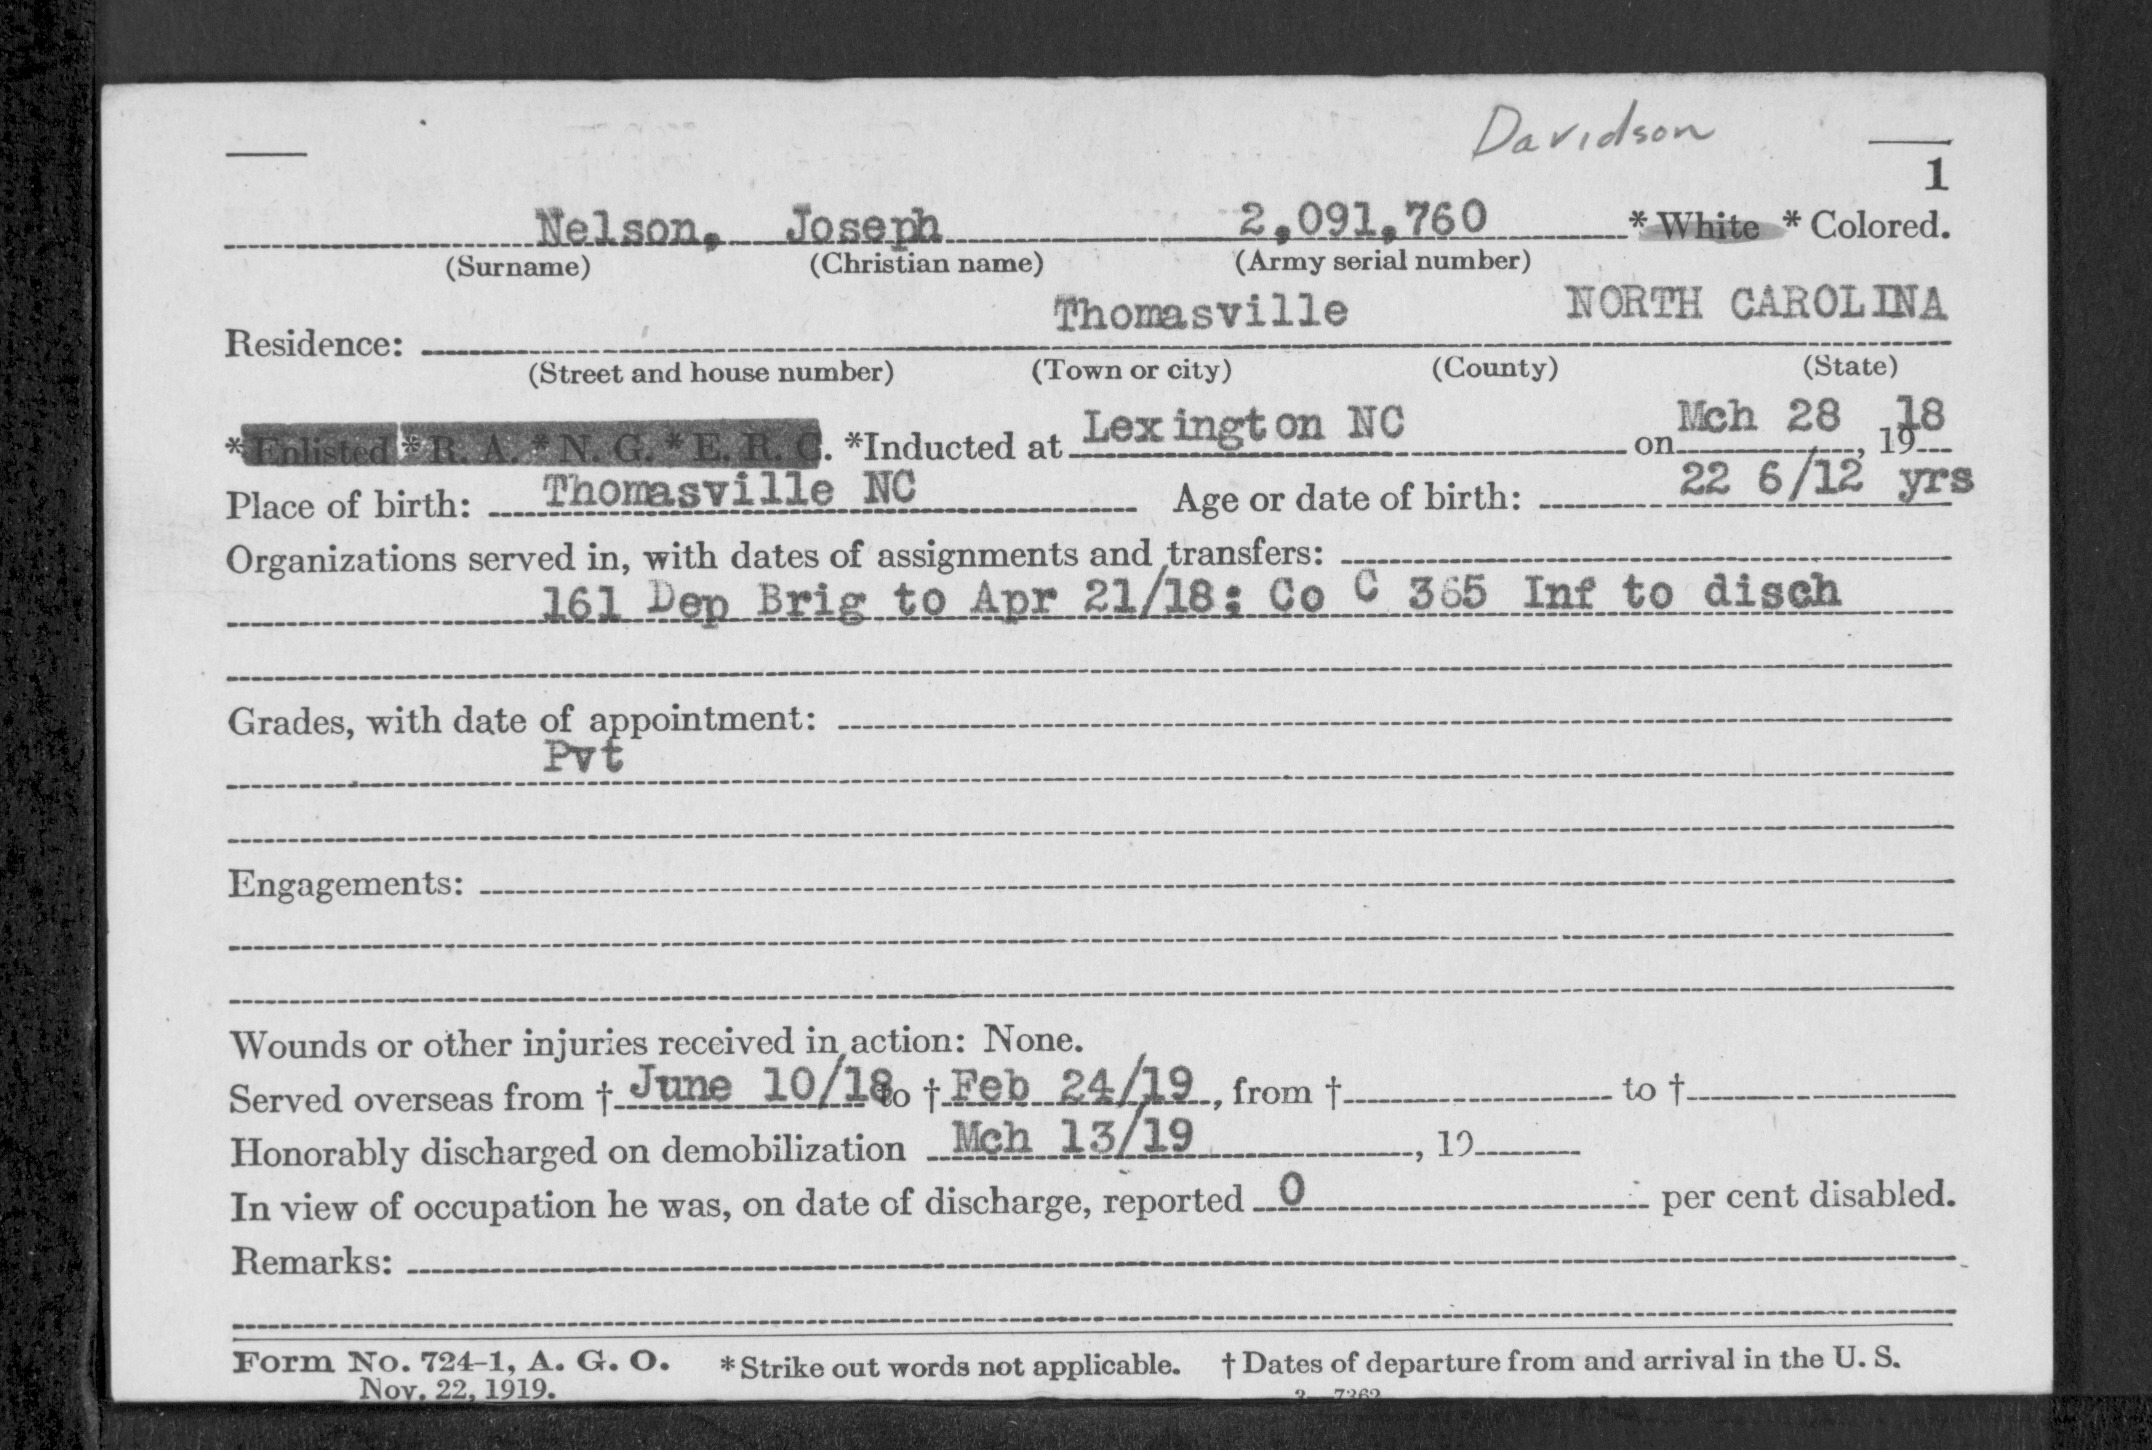 Davidson
1
Nelson, Joseph 2,091,760 * White * Colored.
(Surname) (Christian name) (Army serial number)
Thomasville NORTH CAROLINA
Residence:
(Street and house number) (Town or city) (County) (State)
*Enlisted *R. A. *N. G. *E. R. C. *Inducted at Lexington NC on Mch 28, 1918
Place of birth: Thomasville NC Age or date of birth: 22 6/12 yrs
Organizations served in, with dates of assignments and transfers:
161 Dep Brig to Apr 21/18; Co C 365 Inf to disch
Grades, with date of appointment:
Pvt
Engagements:
Wounds or other injuries received in action: None.
Served overseas from † June 10/18 to † Feb 24/19, from † to †
Honorably discharged on demobilization Mch 13/19, 19
In view of occupation he was, on date of discharge, reported 0 per cent disabled.
Remarks:
Form No. 724-1, A. G. O. *Strike out words not applicable. † Dates of departure from and arrival in the U. S.
Nov. 22, 1919. 3—7362